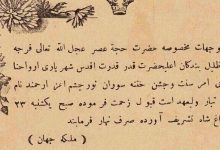 وجهات مخصوصه حضرت حجة عصر عجل الله تعالی فرجه
ظل بندگان اعلیحضرت قدر قدرت اقدس شهریاری ارواحنا
ی امر سنت وجشن ختنه سوران نور چشم اعز ارجمند نام
تبار ولیعهد است قبول زحمت فرموده صبح یکشنبه ۲۳
اغ شاه تشریف آورده صرف نهار فرمایند
( ملکه جهان )